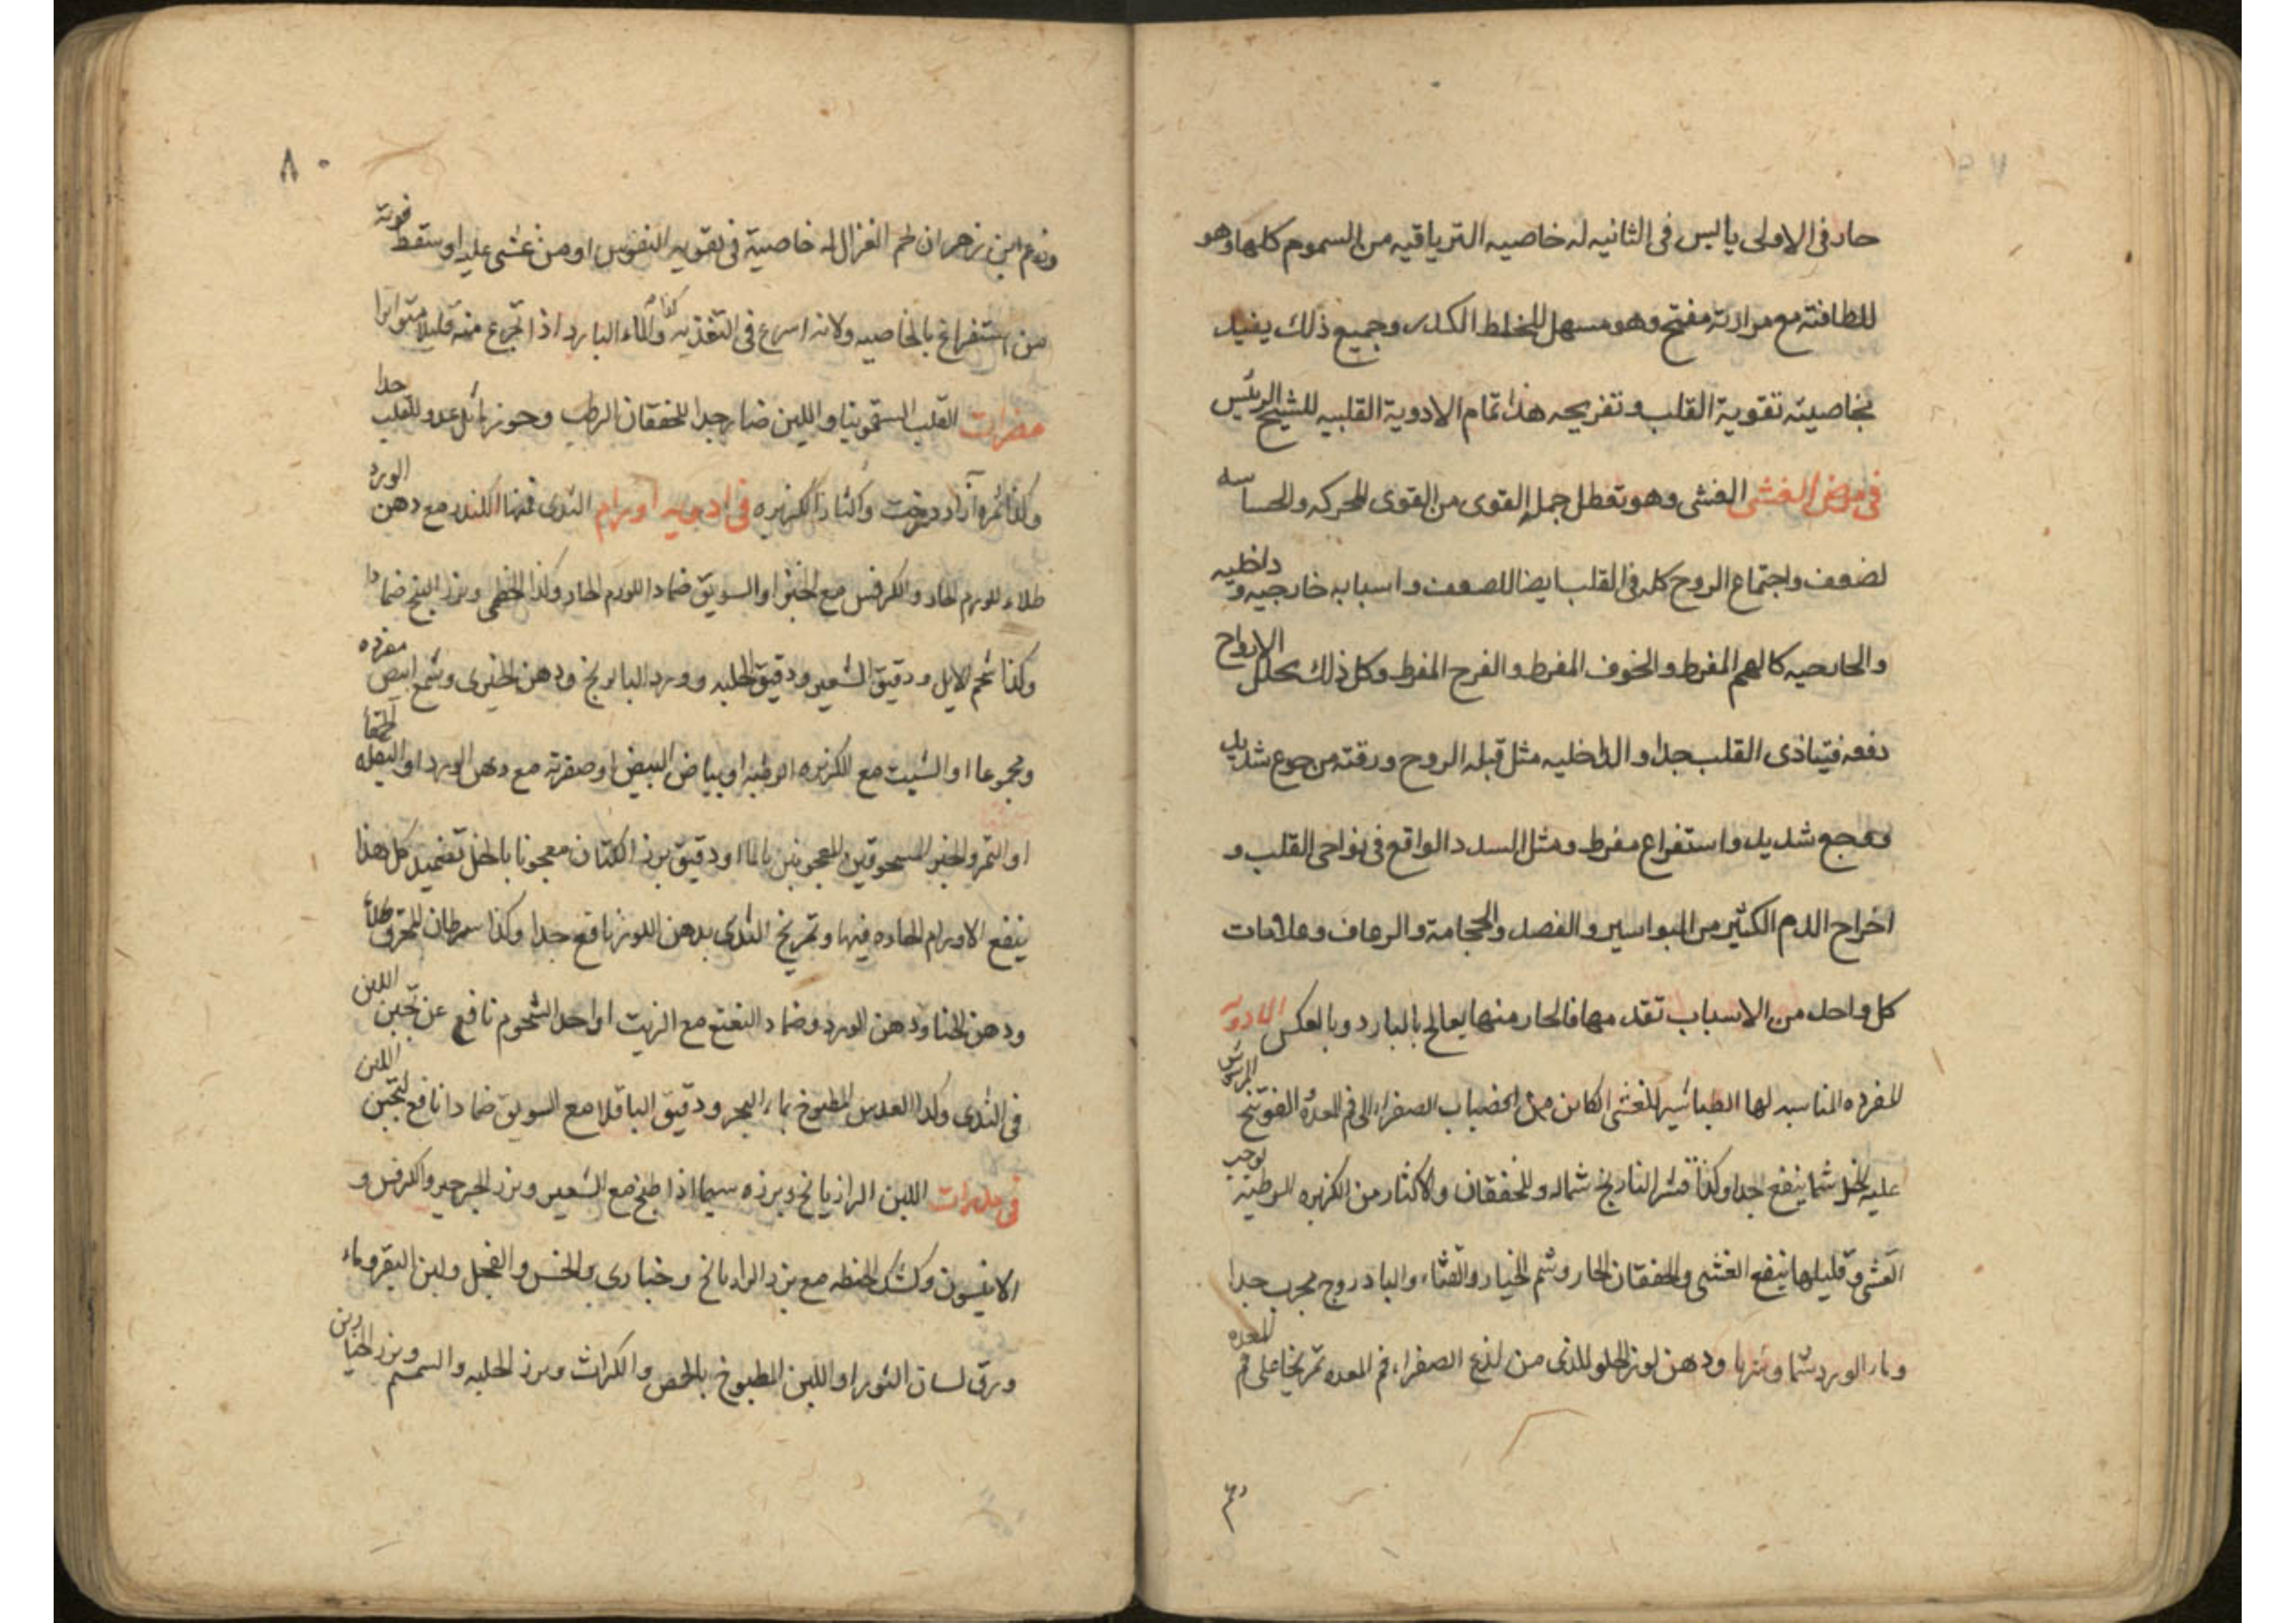 حار فى الاولى يابس فى الثانيه له خاصيه الترياقيه من السموم كلها وهو
للطافته مع مرارته مفتح وهو مسهل للخلط الكدر وجميع ذلك يفيد
بخاصيته تقوية القلب وتفريحه هذا تمام الادوية القلبيه للشيخ الرئيس
فى مرض الغشى الغشى وهو تعطل جل القوى من القوى المحركه والحساسه
لضعف واجتماع الروح كله فى القلب ايضا للضعف واسبابه خارجيه وداخليه
والخارجيه كالهم المفرط والخوف المفرط والفرح المفرط وكل ذلك يحلل الارواح
دفعه فيتاذى القلب جدا والداخليه مثل قبله الروح ورقته من جوع شديد
ووجع شديد واستفراع مفرط ومثل السدد الواقع فى نواحى القلب و
اخراج الدم الكثير من البواسير والفصد والحجامة والرعاف وعلامات
كل واحد من الاسباب تقدمها فالحار منها يعالج بالبارد وبالعكس الادويه
المفرده المناسبه لها الطباشير للغشى الكاين من انصباب الصفراء الى فم المعده الفوتنج المرشوش
عليه الخل شما ينفع جدا وكذا قشر النارنج شما له وللخفقان والاكثار من الكزبره الرطبة توجب
الغشى وقليلها ينفع الغشى والخفقان الحار وشم الخيار والقثاء والبادروج مجرب جدا
وماء الورد شما وشربا ودهن لوز الحلو للذى من لذع الصفراء فم المعده تمريخا على فم المعده
وزعم ابن زهر ان لحم الغزال له خاصية فى تقويه النفوس او من غشى عليه او سقط قوته
من استفراغ بالخاصيه ولانه اسرع فى التغذيه وكذا الماء البارد اذا تجرع منه قليلا متواترا
مضرات القلب السقمونيا واللبن ضار جدا للخفقان الرطب وجوز ماثل عدو للقلب جدا
وكذا ثمره آزاد درخت واكثار الكزبره فى ادويه اورام الثدى فمنها الكندر مع دهن الورد
طلاء للورم الحار والكرفس مع الخبز او السويق ضمادا للورم الحار وكذا الخطمى وبزر البنج ضمادا
وكذا شحم الايل ودقيق الشعير ودقيق الحلبه وورد البابونج ودهن الخيرى وشمع ابيض مفرده
ومجموعا او الشبت مع الكزبره الرطبه او بياض البيض او صفرته مع دهن الورد او البقله الحمقا
او التمر والخبز المسحوقين المعجونين بالماء او دقيق بزر الكتان معجونا بالخل تضميد كل هذا
ينفع الاورام الحاره فيها وتمريخ الثدى بدهن اللوز نافع جدا وكذا سرطان المحرق طلاء
ودهن الحنا ودهن الورد وضماد النعنع مع الزيت او احد الشحوم نافع عن تجبن اللبن
فى الثدى وكذا العدس المطبوخ بماء البحر ودقيق الباقلا مع السويق ضمادا نافع لتجبن اللبن
فى مدرات اللبن الرازيانج وبزره سيما اذا طبخ مع الشعير وبزر الجرجير والكرفس و
الانيسون وكشك الحنطه مع بزر الرازيانج وخبازى والخس والفجل ولبن البقر وماء
ورق لسان الثور او اللبن المطبوخ بالحمص والكراث وبزر الحلبه والسمسم وبزر الخيارين